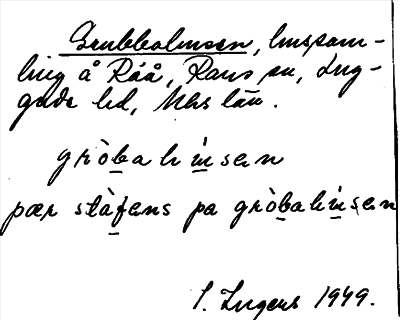 Grubbealmsen, hussam-
ling å Råå, Raus sn, Lug-
gude hd, Mhs län.
gròbahúsen
pær stàfens pa gròbahúsen
S. Ingers 1949.